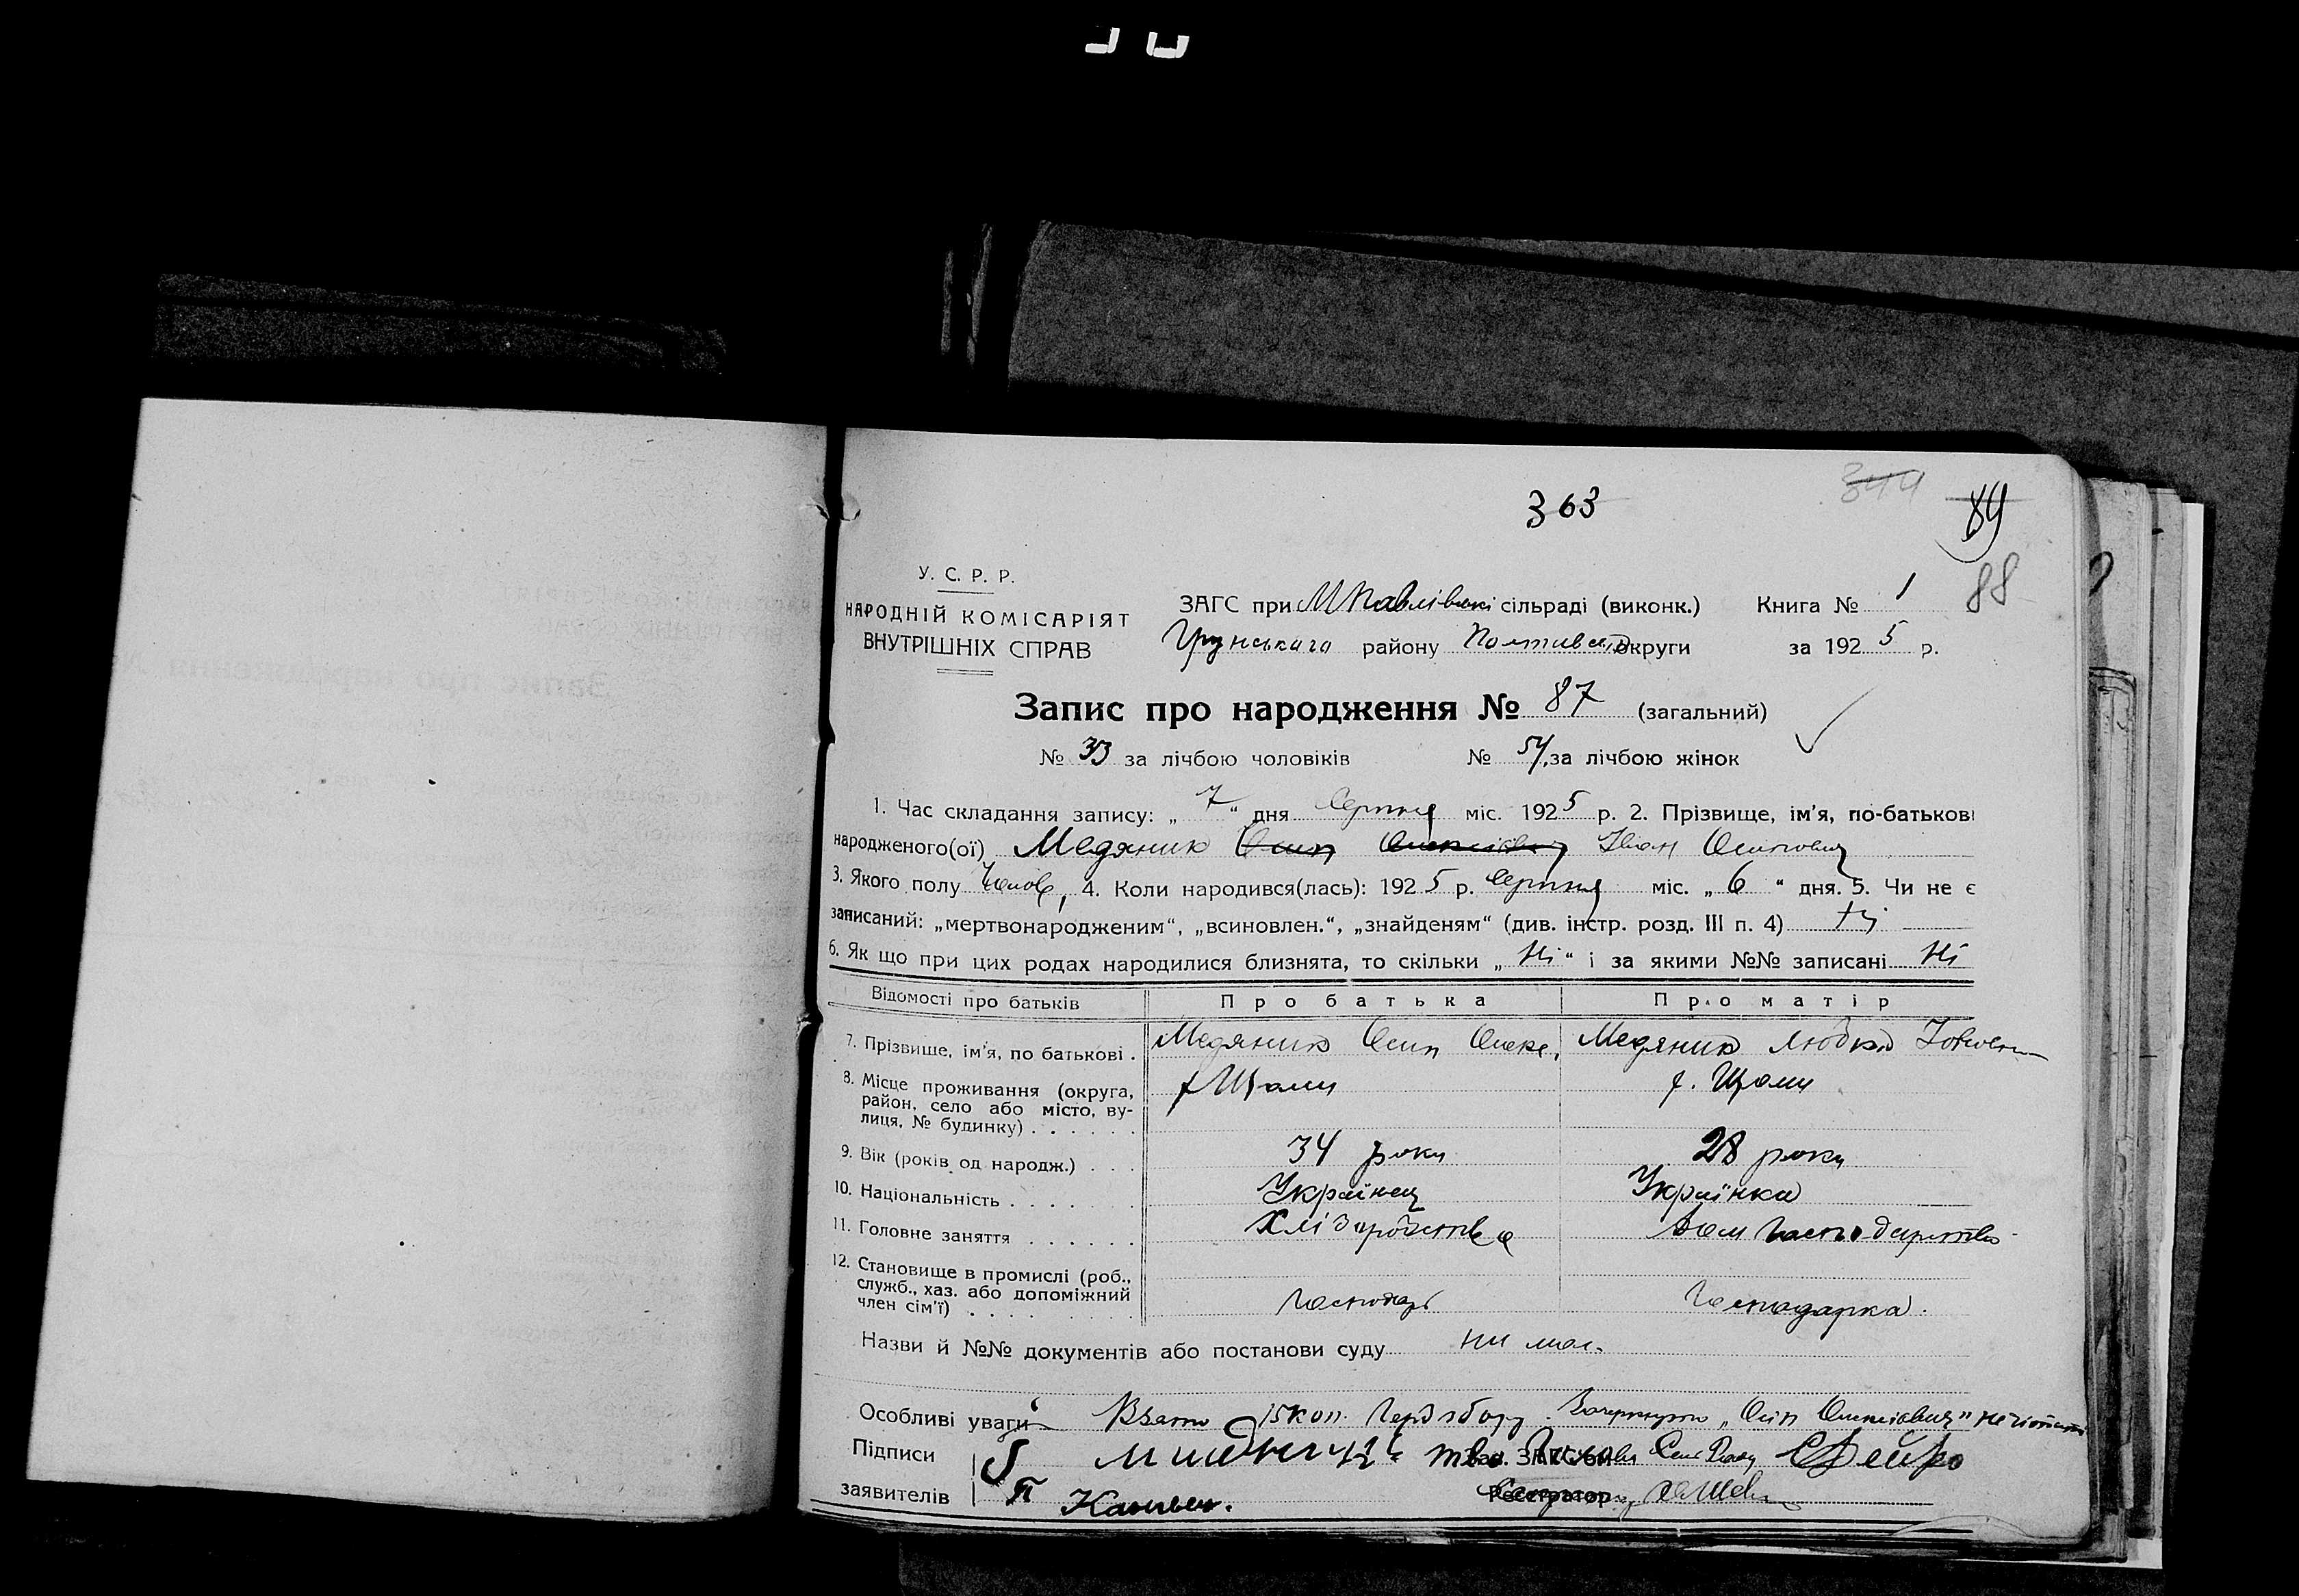 363 344 89
88
У. С. Р. Р.
НАРОДНІЙ КОМІСАРІЯТ
ВНУТРІШНІХ СПРАВ
ЗАГС при МПавлівські сільраді (виконк.) Книга № 1
Грунського району Полтавської округи за 1925 р.
Запис про народження № 87 (загальний)
№ 33 за лічбою чоловіків № 54 за лічбою жінок
1. Час складання запису: „ 7 “ дня Серпня міс. 1925 р. 2. Прізвище, ім'я, по-батькові
народженого(ої) Медяник Осип Олексієвич Іван Осипович
3. Якого полу Чолов, 4. Коли народився(лась): 1925 р. Серпня міс. „ 6 “ дня. 5. Чи не є
записаний: „мертвонародженим“, „всиновлен.“, „знайденям“ (див. інстр. розд. III п. 4) Ні
6. Як що при цих родах народилися близнята, то скільки „ Ні “ і за якими №№ записані Ні
Відомості про батьків Про батька Про матір
7. Прізвище, ім'я, по батькові . Медяник Осип Олекс. Медяник
8. Місце проживання (округа, район, село або місто, вулиця, № будинку) х. Щоми х. Щоми
9. Вік (років од народж.) . . . 34 роки 28 роки
10. Національність . . . . . . . Українец Українка
11. Головне заняття . . . . . . Хліборобство Дом господарство
12. Становище в промислі (роб., служб., хаз. або допоміжний член сім'ї) . . . . Господарь Господарка.
Назви й №№ документів або постанови суду
Особливі уваги Взято 15 коп. Герб збору. Зачеркнуто „Осип Олексієвич“ не читати
Підписи
Зав. ЗАГС'ом
заявителів
Реєстратор